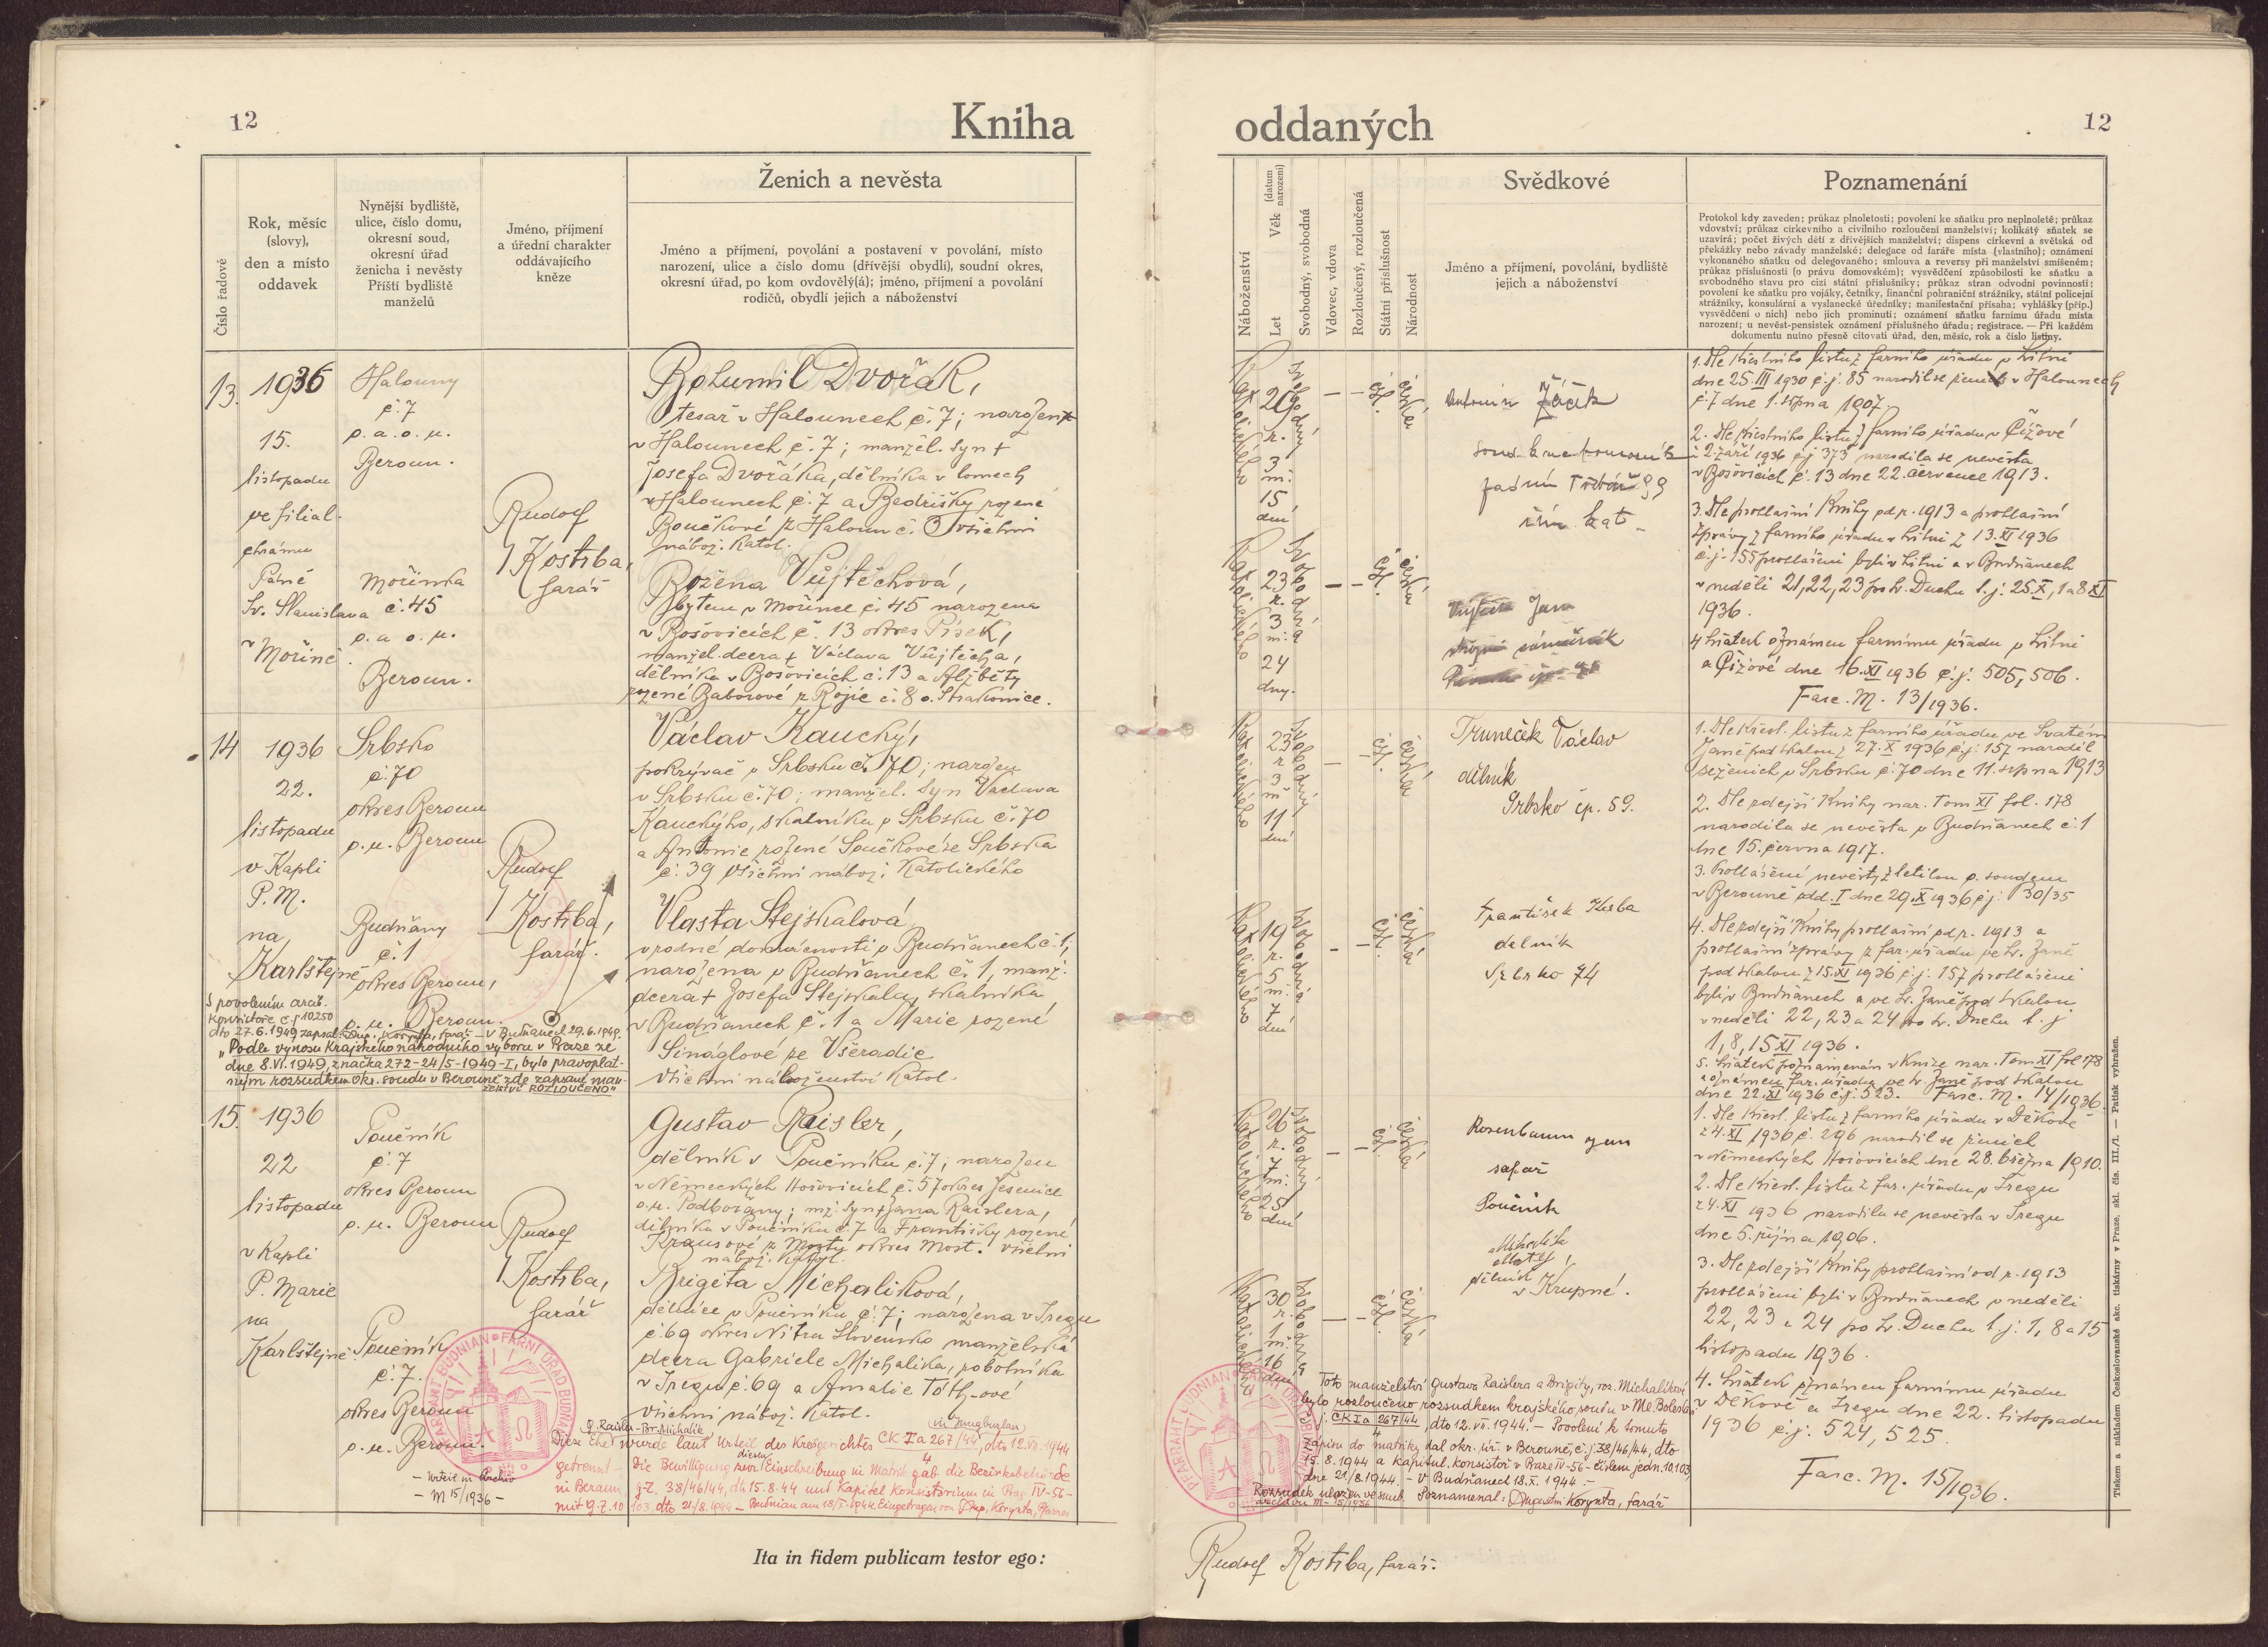 12
Kniha
Číslo řadové
Rok, měsíc
(slovy),
den a místo
oddavek
Nynější bydliště,
ulice, číslo domu,
okresní soud,
okresní úřad
ženicha i nevěsty
Příští bydliště
manželů
Jméno, příjmení
a úřední charakter
oddávajícího
kněze
Ženich a nevěsta
Jméno a příjmení, povolání a postavení v povolání, místo
narození, ulice a číslo domu (dřívější obydlí), soudní okres,
okresní úřad, po kom ovdověly(á); jméno, příjmení a povolání
rodičů, obydlí jejich a náboženství
13.
1936
15.
listopadu
ve filial.
chrámu
Páně
Sv. Stanislava
v Mořině.
Halouny
č. 7
o. a. o. u.
Beroun.
Mořinka
č. 45
o. a o. u.
Beroun.
Rudolf
Kostrba,
farář
Bohumil Dvořák,
tesař v Halounech č. 7; narozen
v Halounech č. 7; manžel. syn †
Josefa Dvořáka, dělníka v lomech
v Halounech č. 7 a Bedřišky rozené
Boučkové z Haloun č. 3 všichni
nábož. katol.
Božena Vůjtěchová,
bytem v Mořince č. 45 narozena
v Bošovicích č. 13 okres Písek,
manžel. dcera † Václava Vůjtěcha,
dělníka v Bošovicích č. 13 a Alžběty
rozené Baborové z Rojic č. 8 o. Strakonice.
14
1936
22.
listopadu
v Kapli
P. M.
na
Karlštejně
Srbsko
č. 70
okres Beroun
o. u. Beroun
Budňany
č. 1
okres Beroun,
o. u. Beroun.
Rudolf
Kostrba,
farář.
Václav Kaucký,
pokrývač v Srbsku č. 70; narozen
v Srbsku č. 70; manžel. syn Václava
Kauckého, skalníka v Srbsku č. 70
a Antonie rozené Součkové ze Srbska
č. 39 všichni nábož. Katolického
Vlasta Stejskalová
v rodné domácnosti v Budňanech č. 1,
narozena v Budňanech č. 1, manž.
dcera † Josefa Stejskala, skalníka
v Budňanech č. 1 a Marie rozené
Sináglové ze Všeradic
Všichni náboženství Katol.
S povolením arcib.
Konsistoře č. j. 10250
dto 27.6.1949 zapsal: Aug. Korynta, farář – V Budňanech 29.6.1949.
"Podle výnosu Krajského národního výboru v Praze ze
dne 8.VI.1949, značka 272-24/5-1949-I, bylo pravoplat-
ným rozsudkem Okr. soudu v Berouně zde zapsané man-
želství ROZLOUČENO"
15.
1936
22
listopadu
v Kapli
P. Marie
na
Karlštejně
Poučník
č. 7
okres Beroun
o. u. Beroun
Poučník
č. 7.
okres Beroun
o. u. Beroun.
Rudolf
Kostrba,
farář
Gustav Raisler,
dělník v Poučníku č. 7; narozen
v Německých Hořovicích č. 57 okres Jesenice
o. u. Podbořany; mž. syn † Jana Raislera,
dělníka v Poučníku č. 7 a Františky rozené
Krausové z Mosty okres Most. všichni
nábož. katol.
Brigita Michaliková,
dělnice v Poučníku č. 7; narozena v Sregu
č. 69 okres Nitra Slovensko manželská
dcera Gabriele Michalika, robotníka
v Sregu č. 69 a Amalie Tóth-ové
všichni nábož. katol.
G. Raisler - Br. Michalik (in Jungbunzlau)
Diese Ehe wurde laut Urteil des Kreisgerichtes CK I a 267/44, dto 12.VII.1944
4
getrennt – Die Bewilligung zur diesen Einschreibung in Matrik gab die Bezirksbehörde
in Beraun, g.z. 38/46/44, dto 15.8.44 und Kapitel Konsistorium in Prag IV-56-
mit g.z. 10 103 dto 21/8.1944 – Budnian am 18/X. 1944. Eingetragen von Aug. Korynta, Pfarrer
– Urteil in Archiv
– M 15/1936 –
PFARRAMT BUDNIAN • FARNÍ ÚŘAD BUDŇANY
Ita in fidem publicam testor ego:
oddaných
12
Náboženství
Let
Věk (datum narození)
Svobodný, svobodná
Vdovec, vdova
Rozloučený, rozloučená
Státní příslušnost
Národnost
Svědkové
Jméno a příjmení, povolání, bydliště
jejich a náboženství
Poznamenání
Protokol kdy zaveden; průkaz plnoletosti; povolení ke sňatku pro neplnoleté; průkaz
vdovství; průkaz církevního a civilního rozloučení manželství; kolikátý sňatek se
uzavírá; počet živých dětí z dřívějších manželství; dispens církevní a světská od
překážky nebo závady manželské; delegace od faráře místa (vlastního); oznámení
vykonaného sňatku od delegovaného; smlouva a reversy při manželství smíšeném;
průkaz příslušnosti (o právu domovském); vysvědčení způsobilosti ke sňatku a
svobodného stavu pro cizí státní příslušníky; průkaz stran odvodní povinnosti;
povolení ke sňatku pro vojáky, četníky, finanční pohraniční strážníky, státní policejní
strážníky, konsulární a vyslanecké úředníky; manifestační přísaha; vyhlášky (příp.)
vysvědčení o nich) nebo jich prominutí; oznámení sňatku farnímu úřadu místa
narození; u nevěst-pensistek oznámení příslušného úřadu; registrace. — Při každém
dokumentu nutno přesně citovati úřad, den, měsíc, rok a číslo listiny.
Katolického
29
r.
3
m.
15
dní
Svobodný
–
–
čsl.
česká
Antonín Žáček
zadní Třebáň 89
řím. kat.
Katolického
23
r.
3
m.
24
dny.
Svobodná
–
–
čsl.
česká
Jan
1. Dle křestního listu z farního úřadu v Litni
dne 25. III 1930 č. j. 85 narodil se ženich v Halounech
č. 7 dne 1. srpna 1907.
2. Dle křestního listu z farního úřadu v Čížové
z 2. září 1936 č. j. 373 narodila se nevěsta
v Bošovicích č. 13 dne 22. července 1913.
3. Dle prohlašní Knihy od r. 1913 a prohlašní
zprávy z farního úřadu v Litni z 13. XI 1936
č. j. 155 prohlášeni byli v Litni a v Budňanech
v neděli 21, 22, 23 po sv. Duchu t. j. 25. X, 1 a 8 XI
1936.
4 Sňatek oznámen farnímu úřadu v Litni
a Čížové dne 16. XI 1936 č. j. 505, 506.
Fasc. M. 13/1936.
Katolického
23
r.
3
m
11
dní
Svobodný
–
čsl.
česká
Truneček Václav
dělník
Srbsko čp. 59.
Katolického
19
r.
5
m.
7
dní
Svobodná
–
–
čsl.
česká
František Kurba
dělník
Srbsko 74
1. Dle křest. listu z farního úřadu ve Svatém
Janě pod Skalou z 27. X 1936 č. j. 157 narodil
se ženich v Srbsku č. 70 dne 11. srpna 1913
2. Dle zdejší Knihy nar. Tom XI fol. 178
narodila se nevěsta v Budňanech č. 1
dne 15. června 1917.
3. Prohlášení nevěsty zletilou o. soudem
v Berouně odd. I dne 29. X 1936 č. j. P 30/35
4. Dle zdejší Knihy prohlašní od r. 1913 a
prohlašní zprávy z far. úřadu ve Sv. Janě
pod Skalou z 15. XI 1936 č. j. 157 prohlášeni
byli v Budňanech a ve Sv. Janě pod Skalou
v neděli 22, 23 a 24 po sv. Duchu t. j.
1, 8, 15 XI 1936.
5. Sňatek poznamenán v Knize nar. Tom XI fol 178
a oznámen far. úřadu ve Sv. Janě pod Skalou
dne 22. XI 1936 č. j. 523. Fasc. M. 14/1936.
Katolického
26
r.
7
m.
25
dní
Svobodný
–
–
čsl.
česká
Rosenbaum
šafář
Poučník
Katolického
30
r.
1
m.
16
dní
Svobodná
–
–
čsl.
česká
dělník
v Krupné.
1. Dle křest. listu z farního úřadu v Děkově
z 4. XI 1936 č. 296 narodil se ženich
v Německých Hořovicích dne 28. března 1910.
2. Dle křest. listu z far. úřadu v Sregu
z 4. XI 1936 narodila se nevěsta v Sregu
dne 5. října 1906.
3. Dle zdejší Knihy prohlašní od r. 1913
prohlášeni byli v Budňanech v neděli
22, 23 a 24 po sv. Duchu t. j. 1, 8 a 15
listopadu 1936.
4. Sňatek oznámen farnímu úřadu
v Děkově a Sregu dne 22. listopadu
1936 č. j. 524, 525.
Fasc. M. 15/1936.
Toto manželství Gustava Raislera a Brigity, roz. Michalikové
bylo rozloučeno rozsudkem krajského soudu v Ml. Boleslavi
č. j. CK I a 267/44, dto 12. VII. 1944. – Povolení k tomuto
4
zápisu do matriky dal okr. úř. v Berouně, č. j. 38/46/44, dto
15.8.1944 a Kapitul. konsistoř v Praze IV-56 – číslem jedn. 10.103
dne 21/8.1944. – V Budňanech 18. X. 1944. –
Rozsudek uložen ve snub. Poznamenal: Augustin Korynta, farář
archivu M – 15/1936
PFARRAMT BUDNIAN • FARNÍ ÚŘAD BUDŇANY
Rudolf Kostrba, farář.
Tiskem a nákladem Československé akc. tiskárny v Praze. skl. čís. III./1. — Patisk vyhražen.